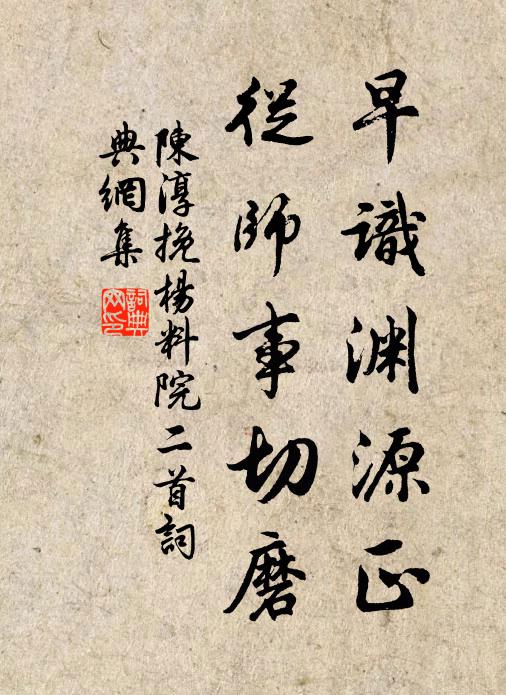 早識渊源正
從師事切磨
陳淳挽楊料院二首詞
典網集
詞典網印